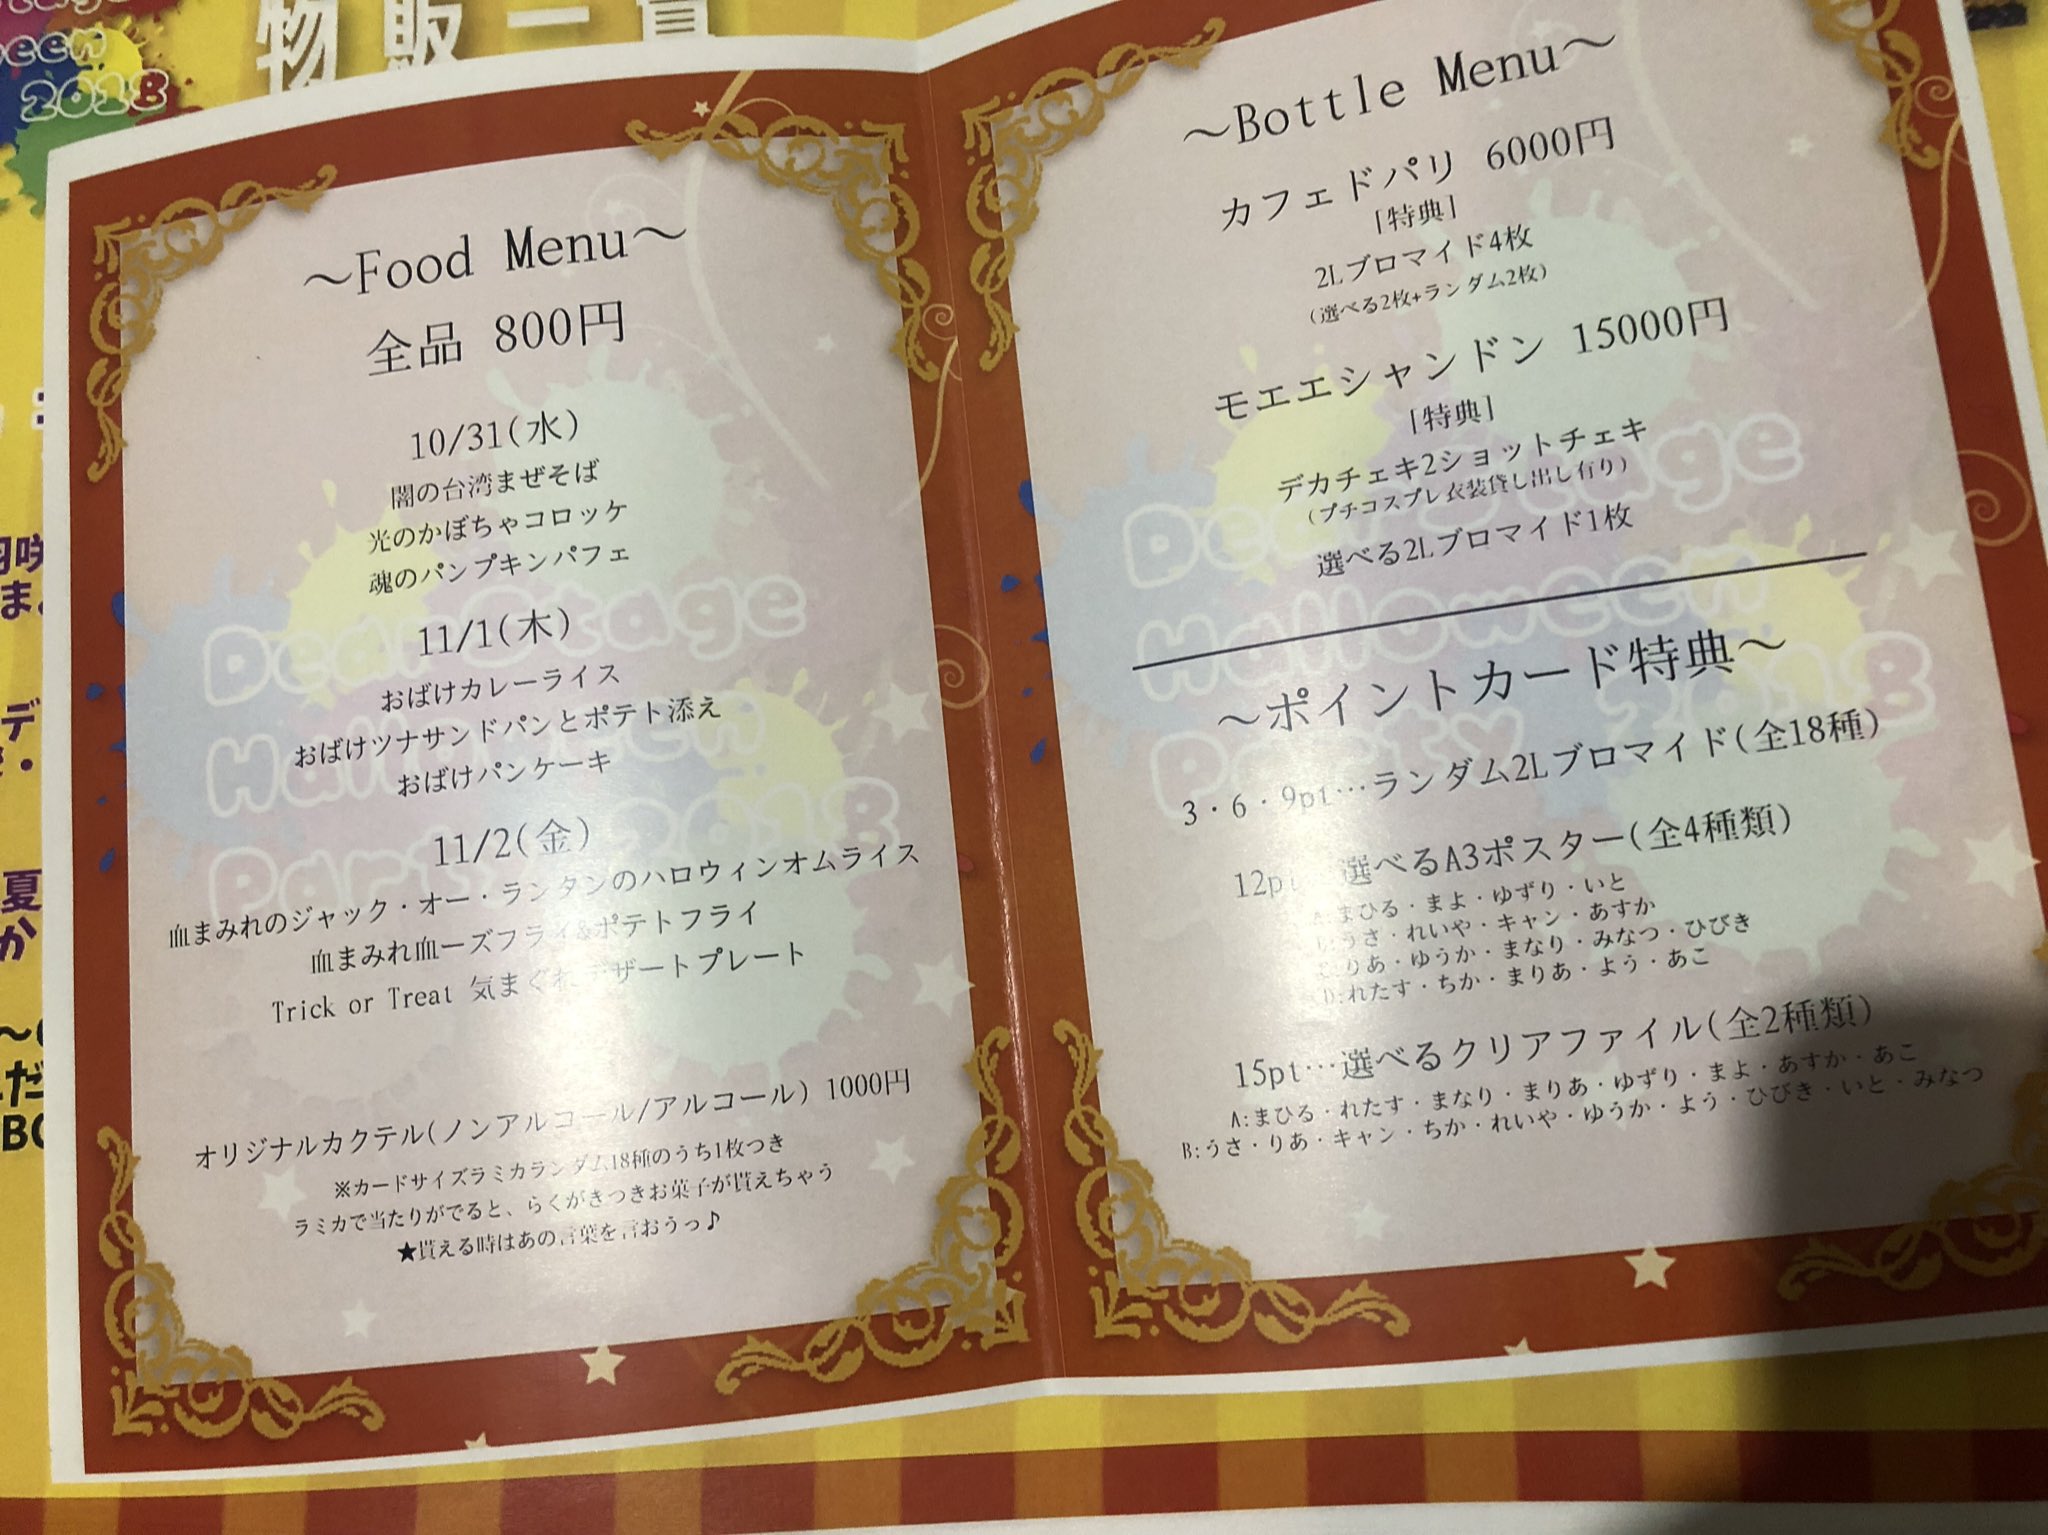 物販一覧
2018
～Food Menu～
全品 800円
10/31(水)
闇の台湾まぜそば
光のかぼちゃコロッケ
魂のパンプキンパフェ
11/1(木)
おばけカレーライス
おばけツナサンドパンとポテト添え
おばけパンケーキ
11/2(金)
血まみれのジャック・オー・ランタンのハロウィンオムライス
血まみれ血ーズフライ&ポテトフライ
Trick or Treat 気まぐれデザートプレート
オリジナルカクテル(ノンアルコール/アルコール) 1000円
※カードサイズラミカランダム18種のうち1枚つき
ラミカで当たりがでると、らくがきつきお菓子が貰えちゃう
★貰える時はあの言葉を言おうっ♪
Dear Stage
Halloween
Party 2018
～Bottle Menu～
カフェドパリ 6000円
[特典]
2Lブロマイド4枚
(選べる2枚+ランダム2枚)
モエエシャンドン 15000円
[特典]
デカチェキ2ショットチェキ
(プチコスプレ衣装貸し出し有り)
選べる2Lブロマイド1枚
～ポイントカード特典～
3・6・9pt…ランダム2Lブロマイド(全18種)
12pt…選べるA3ポスター(全4種類)
A:まひる・まよ・ゆずり・いと
B:うさ・れいや・キャン・あすか
C:りあ・ゆうか・まなり・みなつ・ひびき
D:れたす・ちか・まりあ・よう・あこ
15pt…選べるクリアファイル(全2種類)
A:まひる・れたす・まなり・まりあ・ゆずり・まよ・あすか・あこ
B:うさ・りあ・キャン・ちか・れいや・ゆうか・よう・ひびき・いと・みなつ
Dear Stage
Halloween
Party 2018